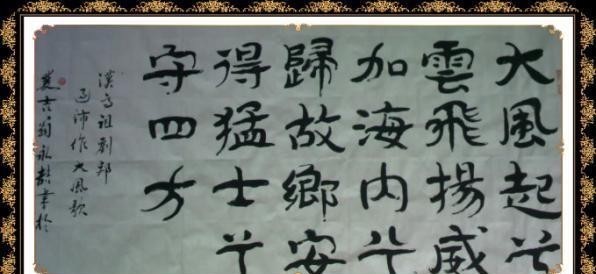 大風起兮
雲飛揚威
加海内兮
歸故鄉安
得猛士兮
守四方
漢高祖劉邦
過沛作大風歌
吉翁永書於